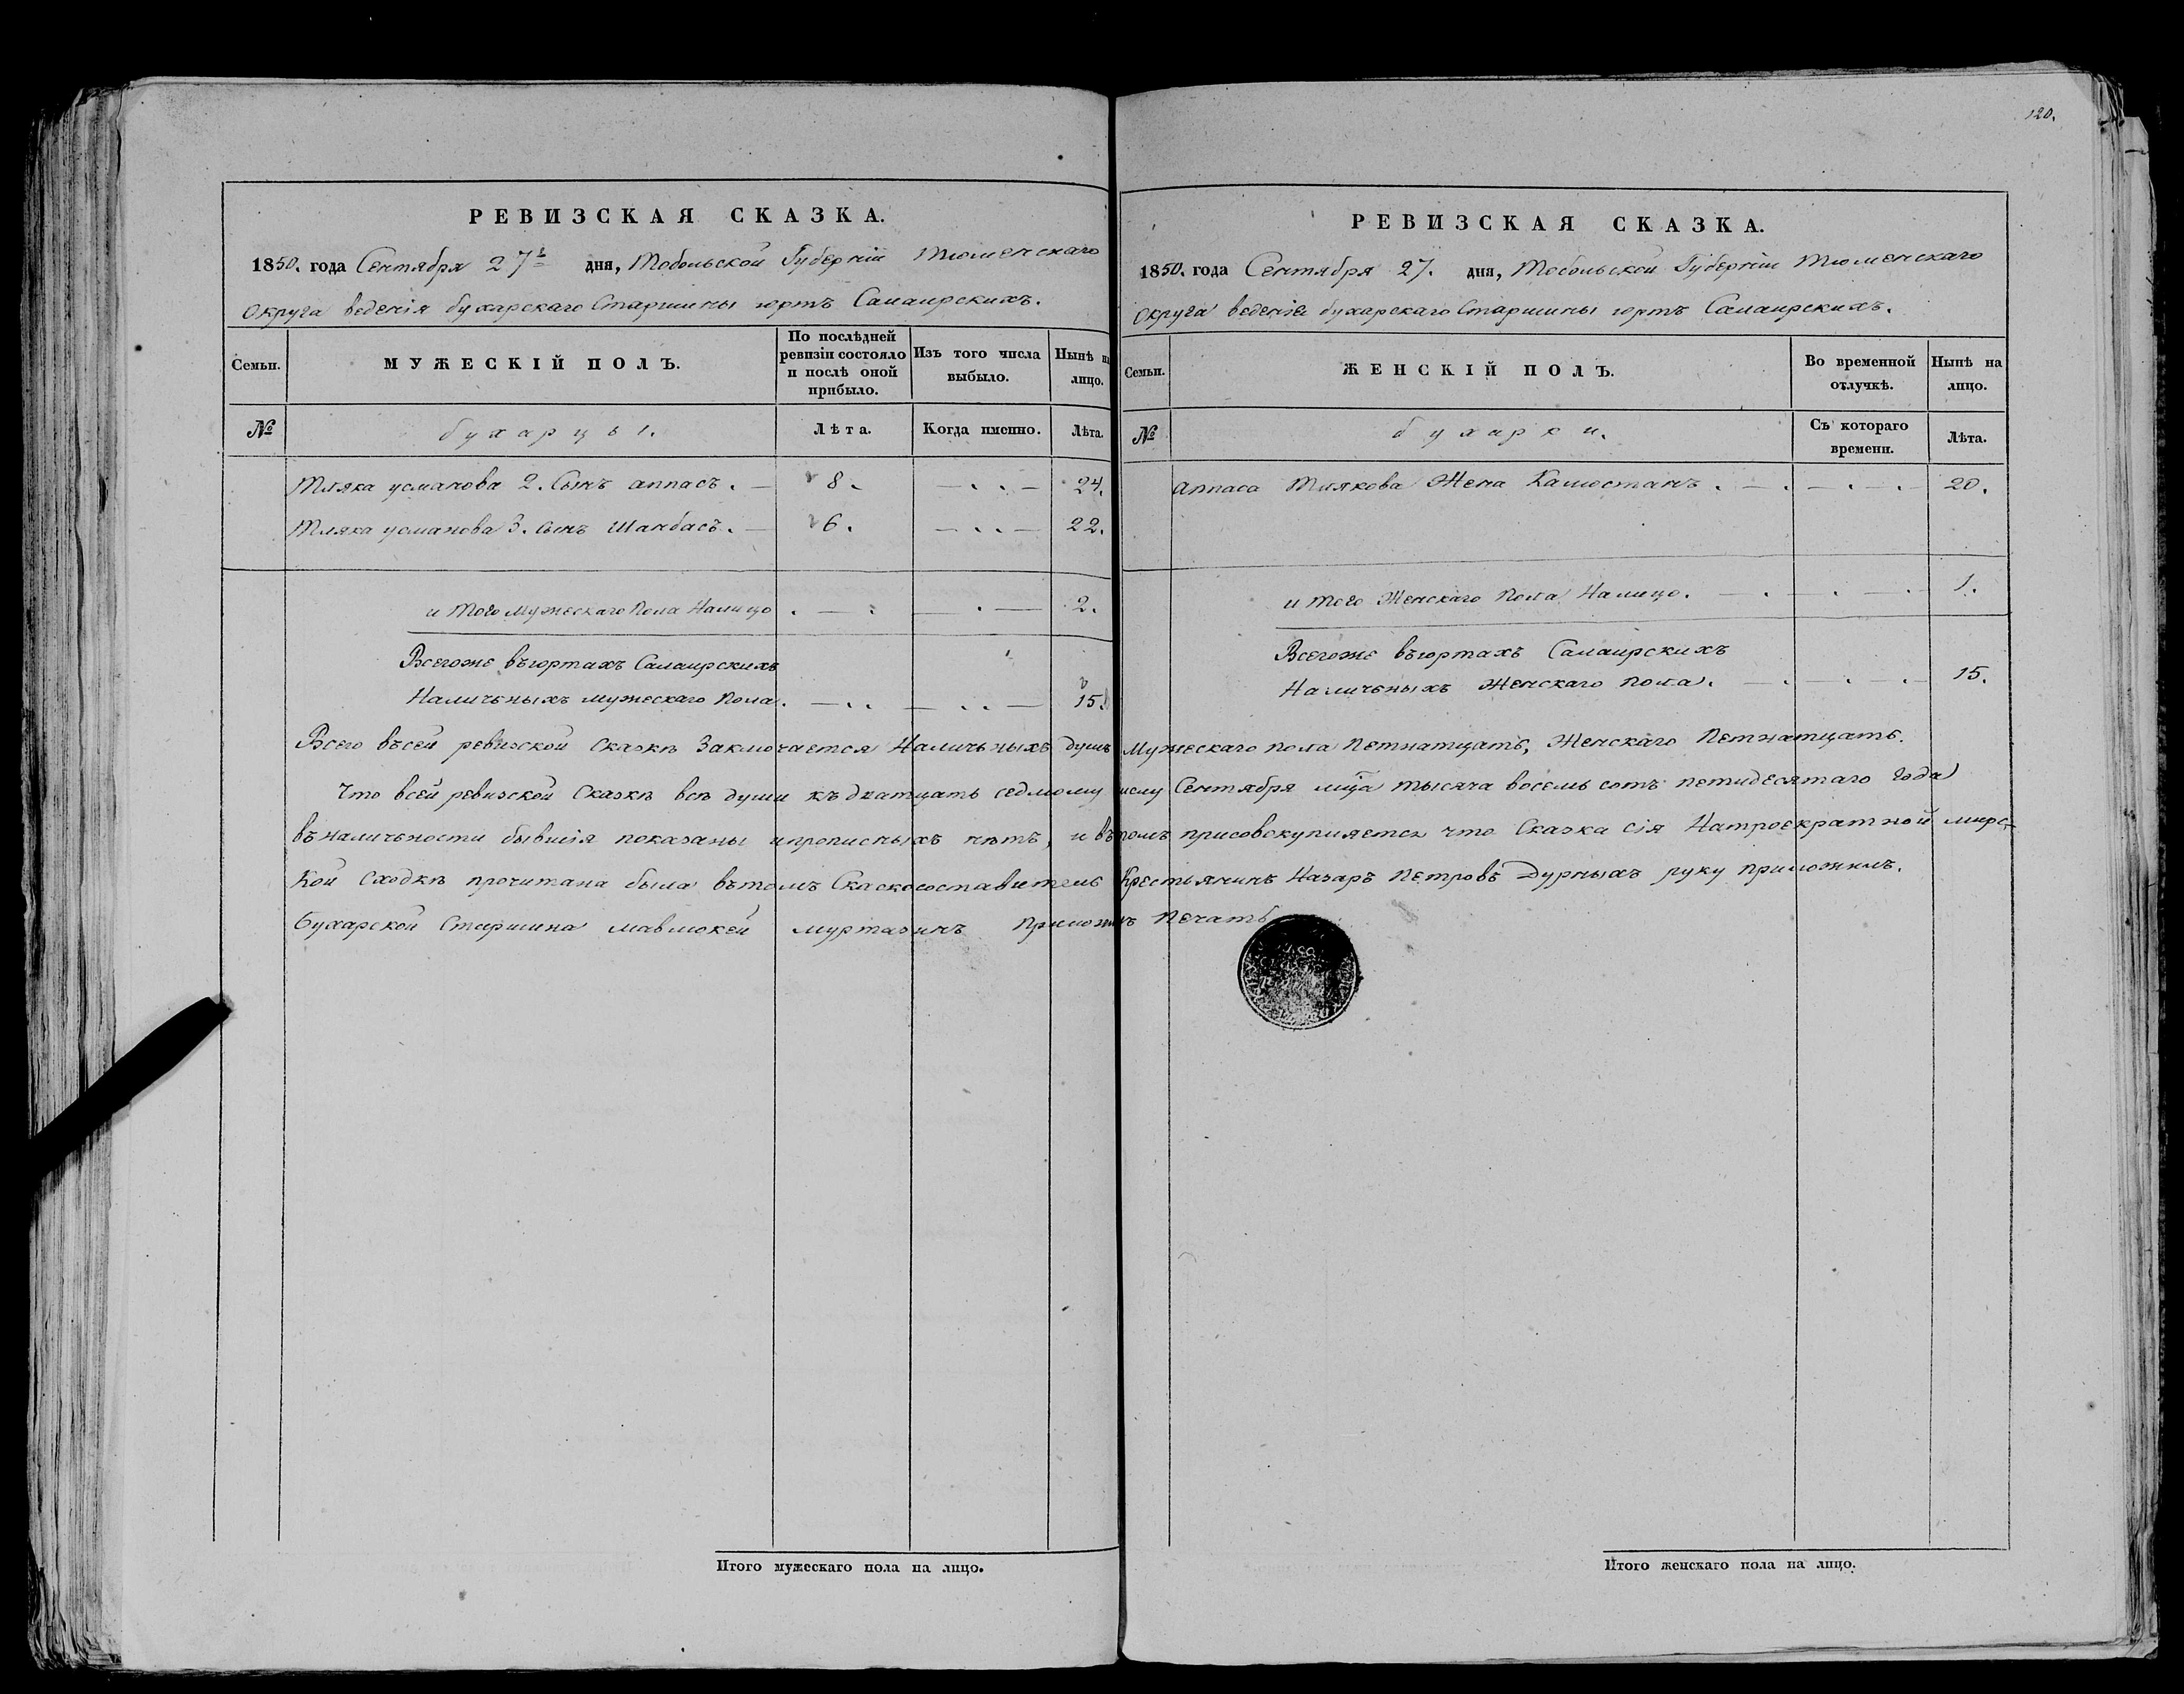 120.
РЕВИЗСКАЯ СКАЗКА.
1850. года Сентября 27ъ дня, Тобольской Губерніи Тюменскаго
Округа веденія бухарскаго Старшины юртъ Салаирскихъ.
Семьи.
МУЖЕСКІЙ ПОЛЪ.
По послѣдней ревизіи состояло и послѣ оной прибыло.
Изъ того числа выбыло.
Нынѣ на лицо.
№
бухарцы.
Лѣта.
Когда именно.
Лѣта.
Тляка усманова 2. Сынъ аппасъ. 8. 24.
Тляка усманова 3. сынъ Шанбасъ. 6. 22.
и того мужескаго пола Налицо 2.
Всегоже въюртахъ Салаирскихъ
Наличныхъ мужескаго пола. 15.
РЕВИЗСКАЯ СКАЗКА.
1850. года Сентября 27. дня, Тобольской Губерніи Тюменскаго
Округа веденія бухарскаго Старшины юртъ Салаирскихъ.
Семьи.
ЖЕНСКІЙ ПОЛЪ.
Во временной отлучкѣ.
Нынѣ на лицо.
№
бухарки.
Съ котораго времени.
Лѣта.
аппаса Тлякова Жена Камостанъ. 20.
и того Женскаго Пола Налицо. 1.
Всегоже въюртахъ Салаирскихъ
Наличныхъ Женскаго пола. 15.
Всего въсей ревизской Сказкѣ Заключается Наличьныхъ душъ Мужескаго пола Петнатцать, Женскаго Петнатцать.
Что всей ревизской Сказкѣ всѣ души къ дватцать седмому числу Сентября мца тысяча восемь сотъ петидесятаго года
въналичьности бывшія показаны ипрописныхъ нѣтъ, и въ томъ присовокупляется что Сказка сія Натроекратной мирс-
кой сходкѣ прочитана была вътомъ Сказкосоставитель Крестьянинъ Назаръ Петровъ Дурныхъ руку приложилъ.
Бухарской Старшина мавлюкей муртазинъ Приложилъ Печать
Итого мужескаго пола на лицо.
Итого женскаго пола на лицо.